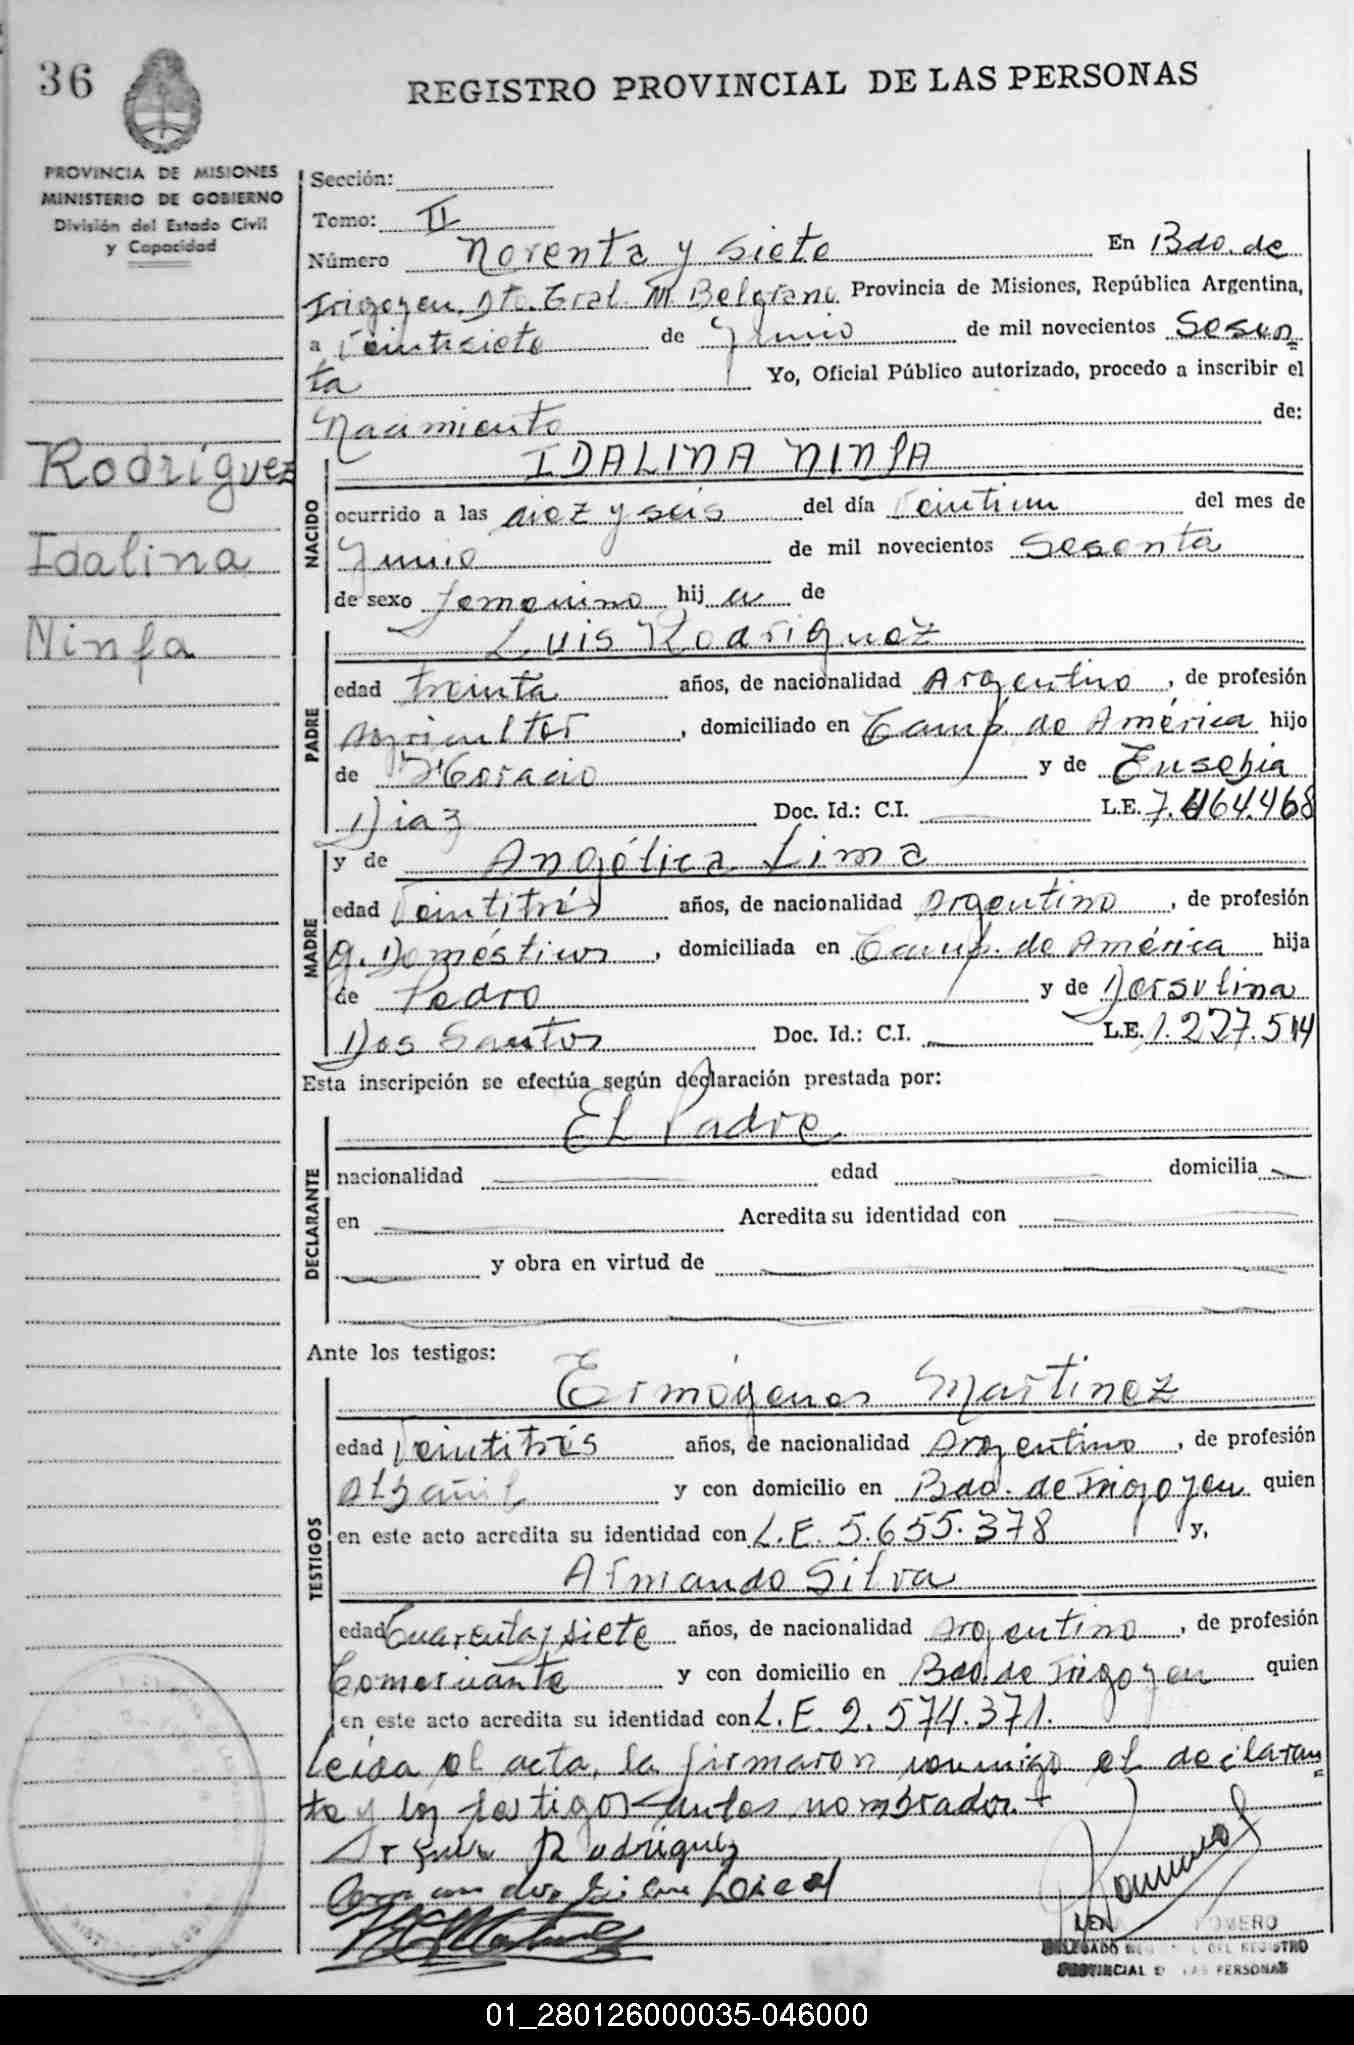 36
REGISTRO PROVINCIAL DE LAS PERSONAS
PROVINCIA DE MISIONES
MINISTERIO DE GOBIERNO
División del Estado Civil
y Capacidad
Rodríguez
Idalina
Ninfa
Sección:
Tomo: II
Número Noventa y siete En Bdo. de
Irigoyen. Dto. Gral. M. Belgrano. Provincia de Misiones, República Argentina,
a Veintisiete de Junio de mil novecientos Sesen
ta Yo, Oficial Público autorizado, procedo a inscribir el
Nacimiento de:
NACIDO
IDALINA NINFA
ocurrido a las diez y seis del día Veintiun del mes de
Junio de mil novecientos Sesenta
de sexo femenino hij a de
PADRE
Luis Rodriguez
edad treinta años, de nacionalidad Argentino, de profesión
Agricultor, domiciliado en Camp. de América hijo
de Horacio y de Eusebia
Diaz Doc. Id.: C.I. L.E. 7.464.468
MADRE
y de Angélica Lima
edad Veintitrés años, de nacionalidad Argentino, de profesión
Q. Domésticos, domiciliada en Camp. de América hija
de Pedro y de Dorsulina
Dos Santos Doc. Id.: C.I. L.E. 1.227.514
Esta inscripción se efectúa según declaración prestada por:
DECLARANTE
El Padre
nacionalidad edad domicilia
en Acredita su identidad con
y obra en virtud de
Ante los testigos:
TESTIGOS
Ermógenes Martinez
edad Veintitrés años, de nacionalidad Argentino, de profesión
Albañil y con domicilio en Bdo. de Irigoyen quien
en este acto acredita su identidad con L.E. 5.655.378 y,
Armando Silva
edad Cuarenta y siete años, de nacionalidad Argentino, de profesión
Comerciante y con domicilio en Bdo. de Irigoyen quien
en este acto acredita su identidad con L.E. 2.574.371.
Leída el acta, la firmaron conmigo el declaran
te y los testigos antes nombrados.
Rodriguez
ROMERO
DELEGADO DEL REGISTRO
PROVINCIAL DE LAS PERSONAS
01_280126000035-046000